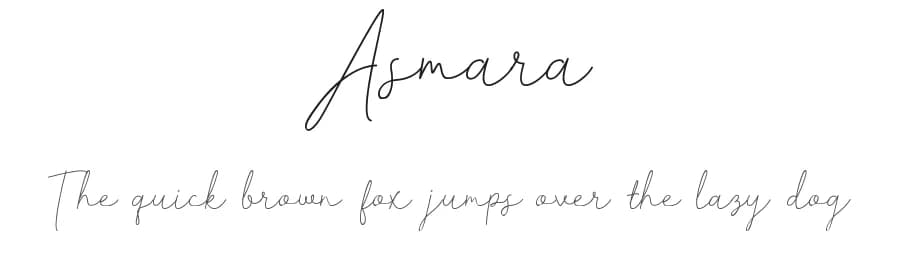 Asmara
The quick brown fox jumps over the lazy dog